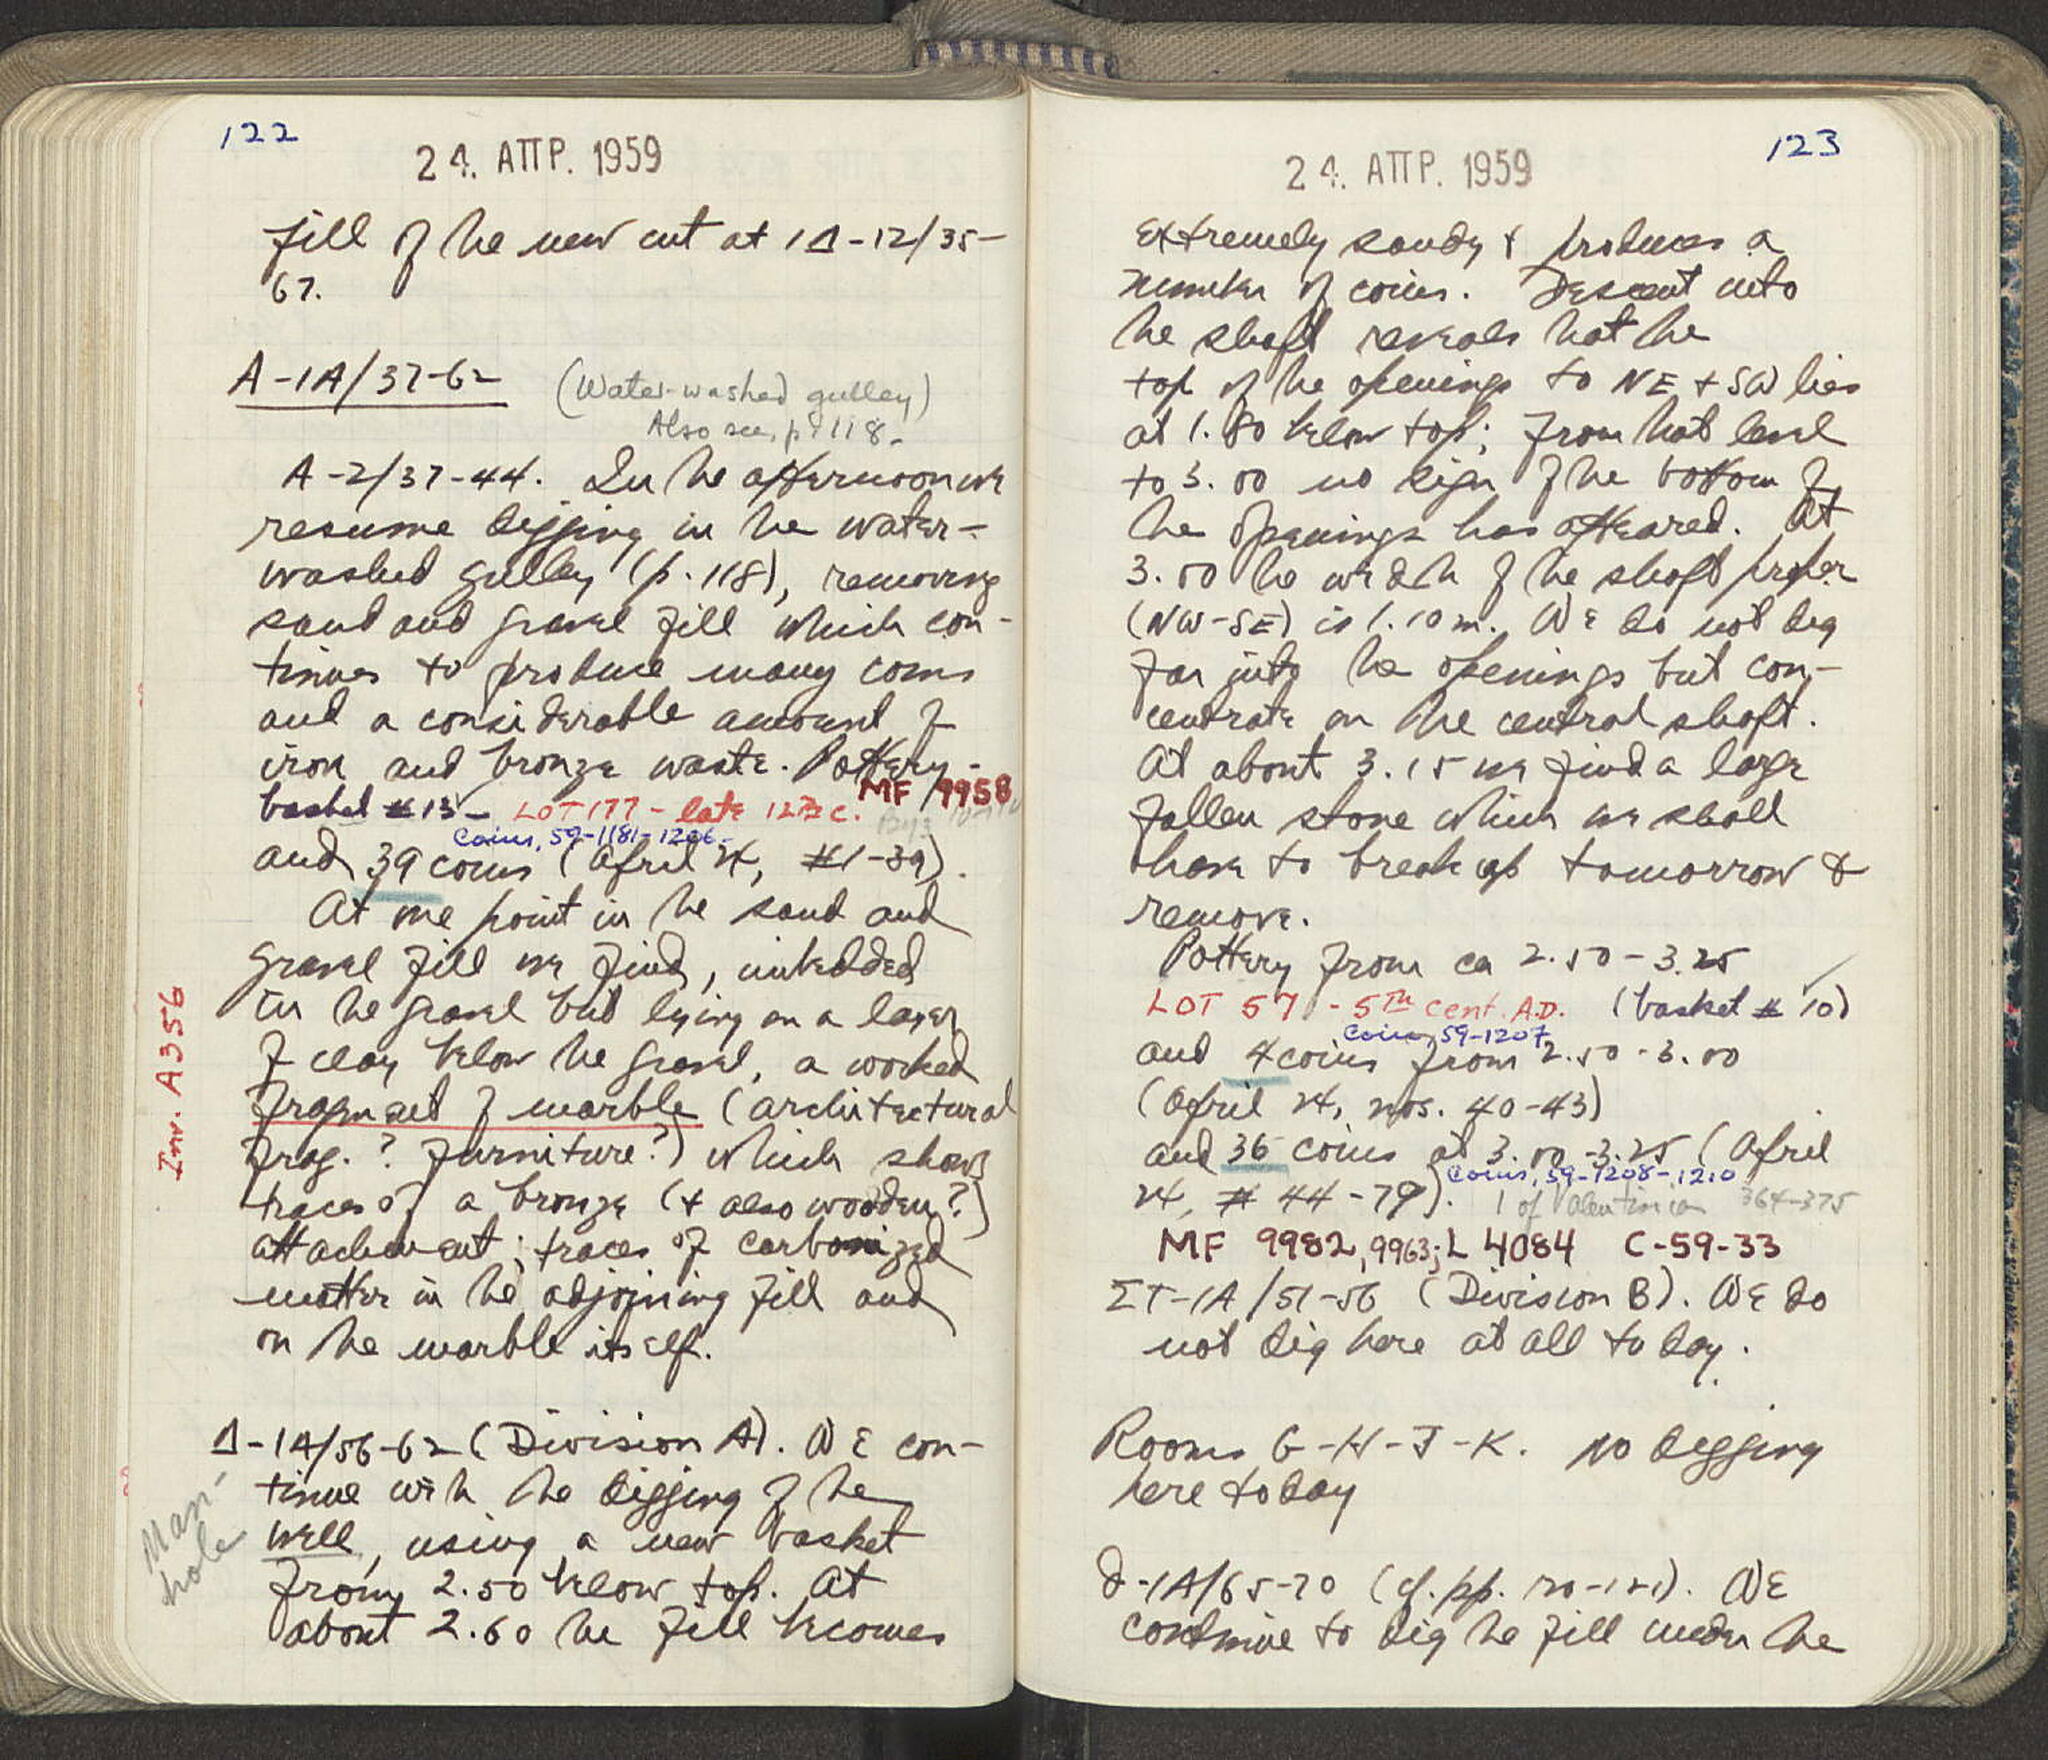 122
24. ΑΠΡ. 1959
fill of the new cut at 1Δ-12/35-
67.
A-1A/37-62 (Water-washed gulley)
Also see, p. 118-
A-2/37-44. In the afternoon we
resume digging in the water-
washed gulley (p. 118), removing
sand and gravel fill which con-
tinues to produce many coins
and a considerable amount of
iron and bronze waste. Pottery -
MF 9958
basket #13 - LOT 177 - late 12th c.
Coins, 59-1181-1206-
and 39 coins (April 24, #1-39).
At one point in the sand and
gravel fill we find, imbedded
in the gravel but lying on a layer
of clay below the gravel, a worked
Inv. A356
fragment of marble (architectural
frag.? furniture?) which shows
traces of a bronze (+ also wooden?)
attachment; traces of carbonized
matter in the adjoining fill and
on the marble itself.
Δ-1A/56-62 (Division A). We con-
tinue with the digging of the
Man-
hole
well, using a new basket
from 2.50 below top. At
about 2.60 the fill becomes
123
24. ΑΠΡ. 1959
extremely sandy & produces a
number of coins. Descent into
the shaft reveals that the
top of the openings to NE + SW lies
at 1.80 below top; from that level
to 3.00 no sign of the bottom of
the openings has appeared. At
3.00 the width of the shaft proper
(NW-SE) is 1.10 m. We do not dig
far into the openings but con-
centrate on the central shaft.
At about 3.15 we find a large
fallen stone which we shall
have to break up tomorrow &
remove.
Pottery from ca 2.50 - 3.25
LOT 57 - 5th cent. A.D. (basket # 10)
Coins, 59-1207
and 4 coins from 2.50 - 3.00
(April 24, nos. 40-43)
and 36 coins at 3.00-3.25 (April
Coins, 59-1208-1210
24, # 44-79). 1 of Valentinian 364-375
MF 9982, 9963; L 4084 C-59-33
ΣT-1A/51-56 (Division B). We do
not dig here at all today.
Rooms G-H-J-K. No digging
here today
-1A/65-70 (cf. pp. 120-121). We
continue to dig the fill under the